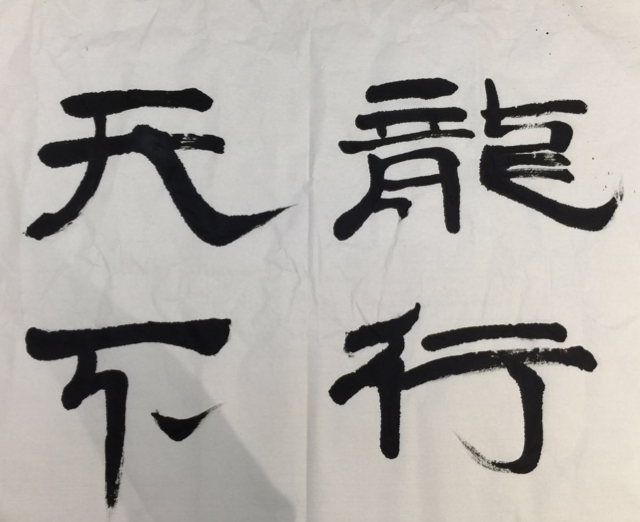 龍行
天下